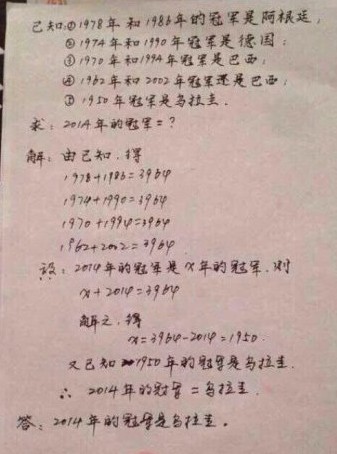 已知:①1978年和1986年的冠军是阿根廷;
②1974年和1990年冠军是德国;
③1970年和1994年冠军是巴西;
④1962年和2002年冠军还是巴西;
⑤1950年冠军是乌拉圭.
求:2014年的冠军=?
解:由已知.得
1978+1986=3964
1974+1990=3964
1970+1994=3964
1962+2002=3964
设:2014年的冠军是x年的冠军.则
x+2014=3964
解之.得
x=3964-2014=1950.
又已知1950年的冠军是乌拉圭.
∴ 2014年的冠军=乌拉圭.
答:2014年的冠军是乌拉圭。